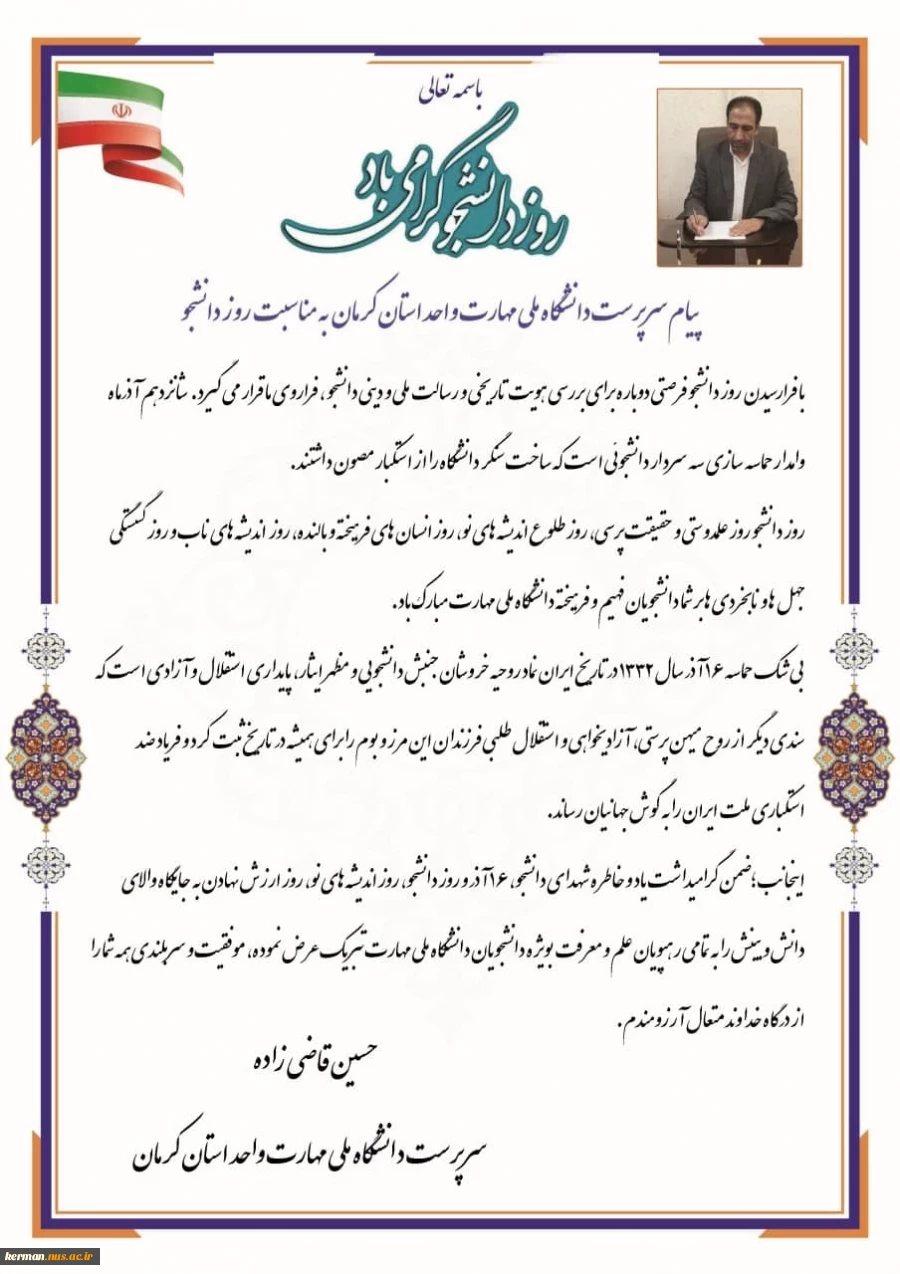 باسمه تعالی
روز دانشجو گرامی باد
پیام سرپرست دانشگاه ملی مهارت واحد استان کرمان به مناسبت روز دانشجو
با فرارسیدن روز دانشجو فرصتی دوباره برای بررسی هویت تاریخی و رسالت ملی و دینی دانشجو، فراروی ما قرار می گیرد. شانزدهم آذرماه
وامدار حماسه سازی سه سردار دانشجوئی است که ساخت سنگر دانشگاه را از استکبار مصون داشتند.
روز دانشجو روز علمدوستی و حقیقت پرسی، روز طلوع اندیشه های نو، روز انسان های فرهیخته و بالنده، روز اندیشه های ناب و روز گسستگی
جهل ها و نابخردی ها بر شما دانشجویان فهیم و فرهیخته دانشگاه ملی مهارت مبارک باد.
بی شک حماسه ۱۶ آذر سال ۱۳۳۲ در تاریخ ایران نماد روحیه خروشان جنبش دانشجویی و مظهر ایثار، پایداری استقلال و آزادی است که
سندی دیگر از روح میهن پرستی، آزادیخواهی و استقلال طلبی فرزندان این مرز و بوم را برای همیشه در تاریخ ثبت کرد و فریاد ضد
استکباری ملت ایران را به گوش جهانیان رساند.
اینجانب؛ ضمن گرامیداشت یاد و خاطره شهدای دانشجو، ۱۶ آذر و روز دانشجو، روز اندیشه های نو، روز ارزش نهادن به جایگاه والای
دانش و بینش را به تمامی رهپویان علم و معرفت بویژه دانشجویان دانشگاه ملی مهارت تبریک عرض نموده، موفقیت و سربلندی همه شما را
از درگاه خداوند متعال آرزومندم.
حسین قاضی زاده
سرپرست دانشگاه ملی مهارت واحد استان کرمان
kerman.nus.ac.ir